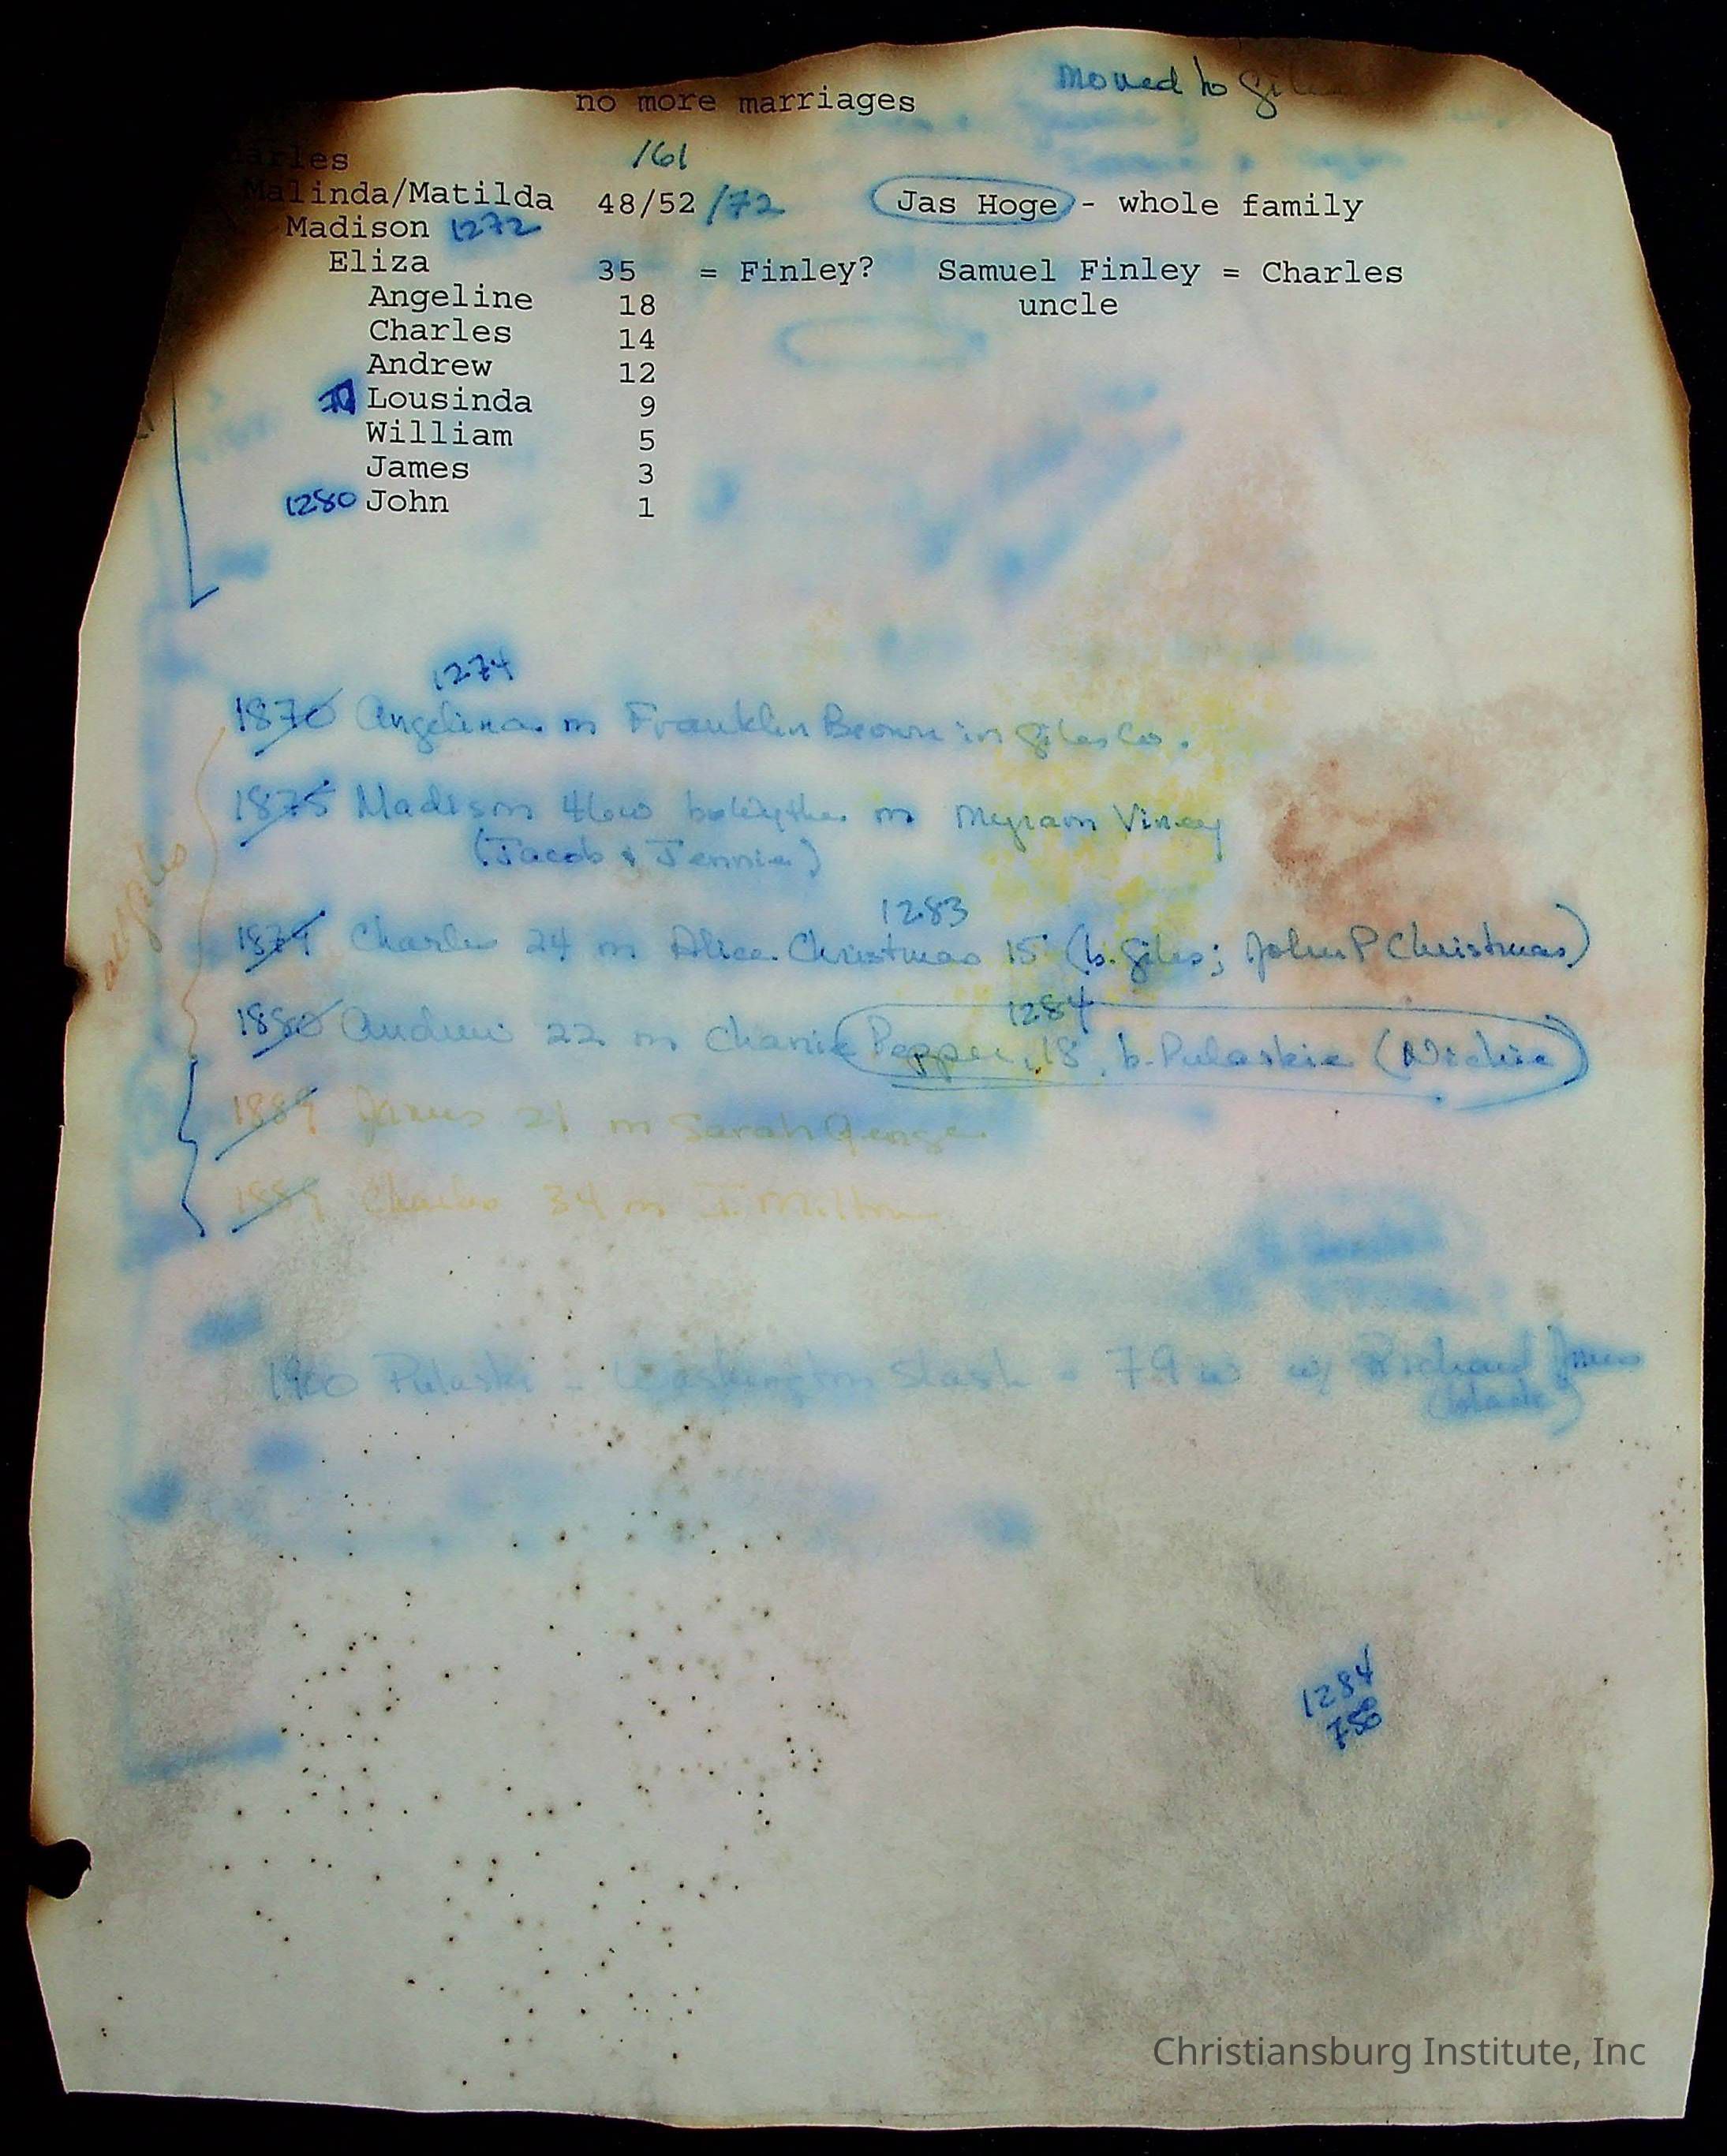 moved to
no more marriages
Charles /61
Malinda/Matilda 48/52 /72 Jas Hoge - whole family
Madison 1272
Eliza 35 = Finley? Samuel Finley = Charles
uncle
Angeline 18
Charles 14
Andrew 12
Lousinda 9
William 5
James 3
1280 John 1
1274
1870 Angelina m Franklin Brown in Giles Co.
1875 Madison 46w m Myriam Viney
(Jacob & Jennie)
1283
1879 Charles 24 m Alice Christmas 15 (b. Giles; John P Christmas)
1284
1880 Andrew 22 m Chanie Pepper, 18, b. Pulaskie (Nichie)
1889 James 21 m Sarah George
1889 Charles 34 m J. Milton
all Giles
1900 Pulaski - Washington Slash = 79 w w/ Richard Jones
(black)
1284
750
Christiansburg Institute, Inc